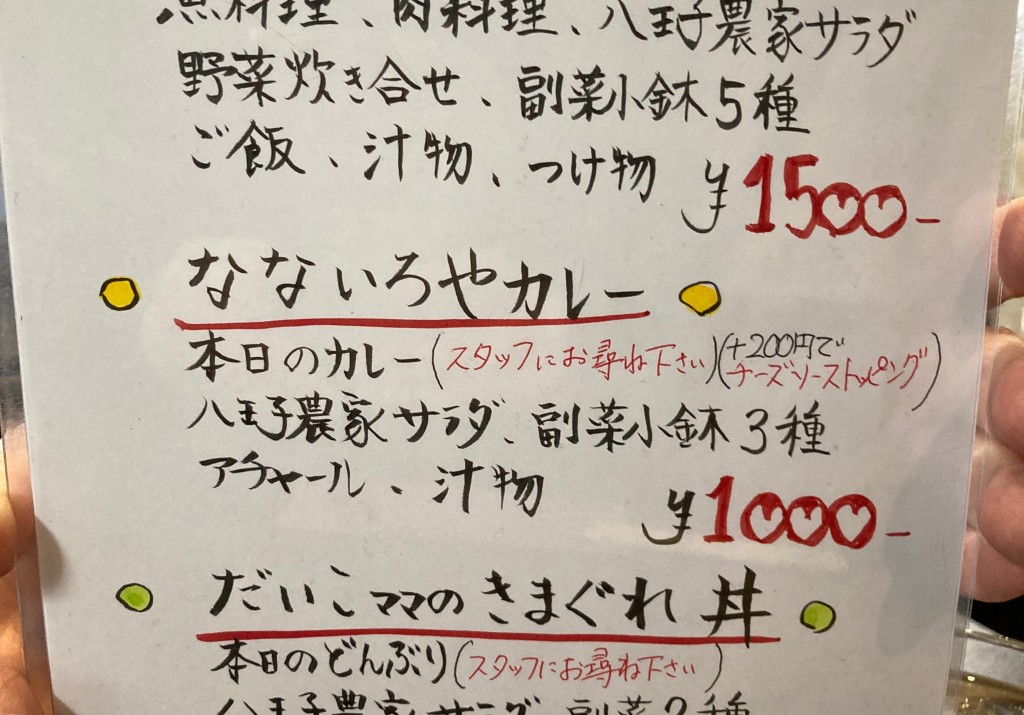 魚料理、肉料理、八王子農家サラダ
野菜炊き合せ、副菜小鉢5種
ご飯、汁物、つけ物 ¥1500-
なないろやカレー
本日のカレー(スタッフにお尋ね下さい)(+200円で
チーズソーストッピング)
八王子農家サラダ、副菜小鉢3種
アチャール、汁物 ¥1000-
だいこママのきまぐれ丼
本日のどんぶり(スタッフにお尋ね下さい)
八王子農家サラダ、副菜2種